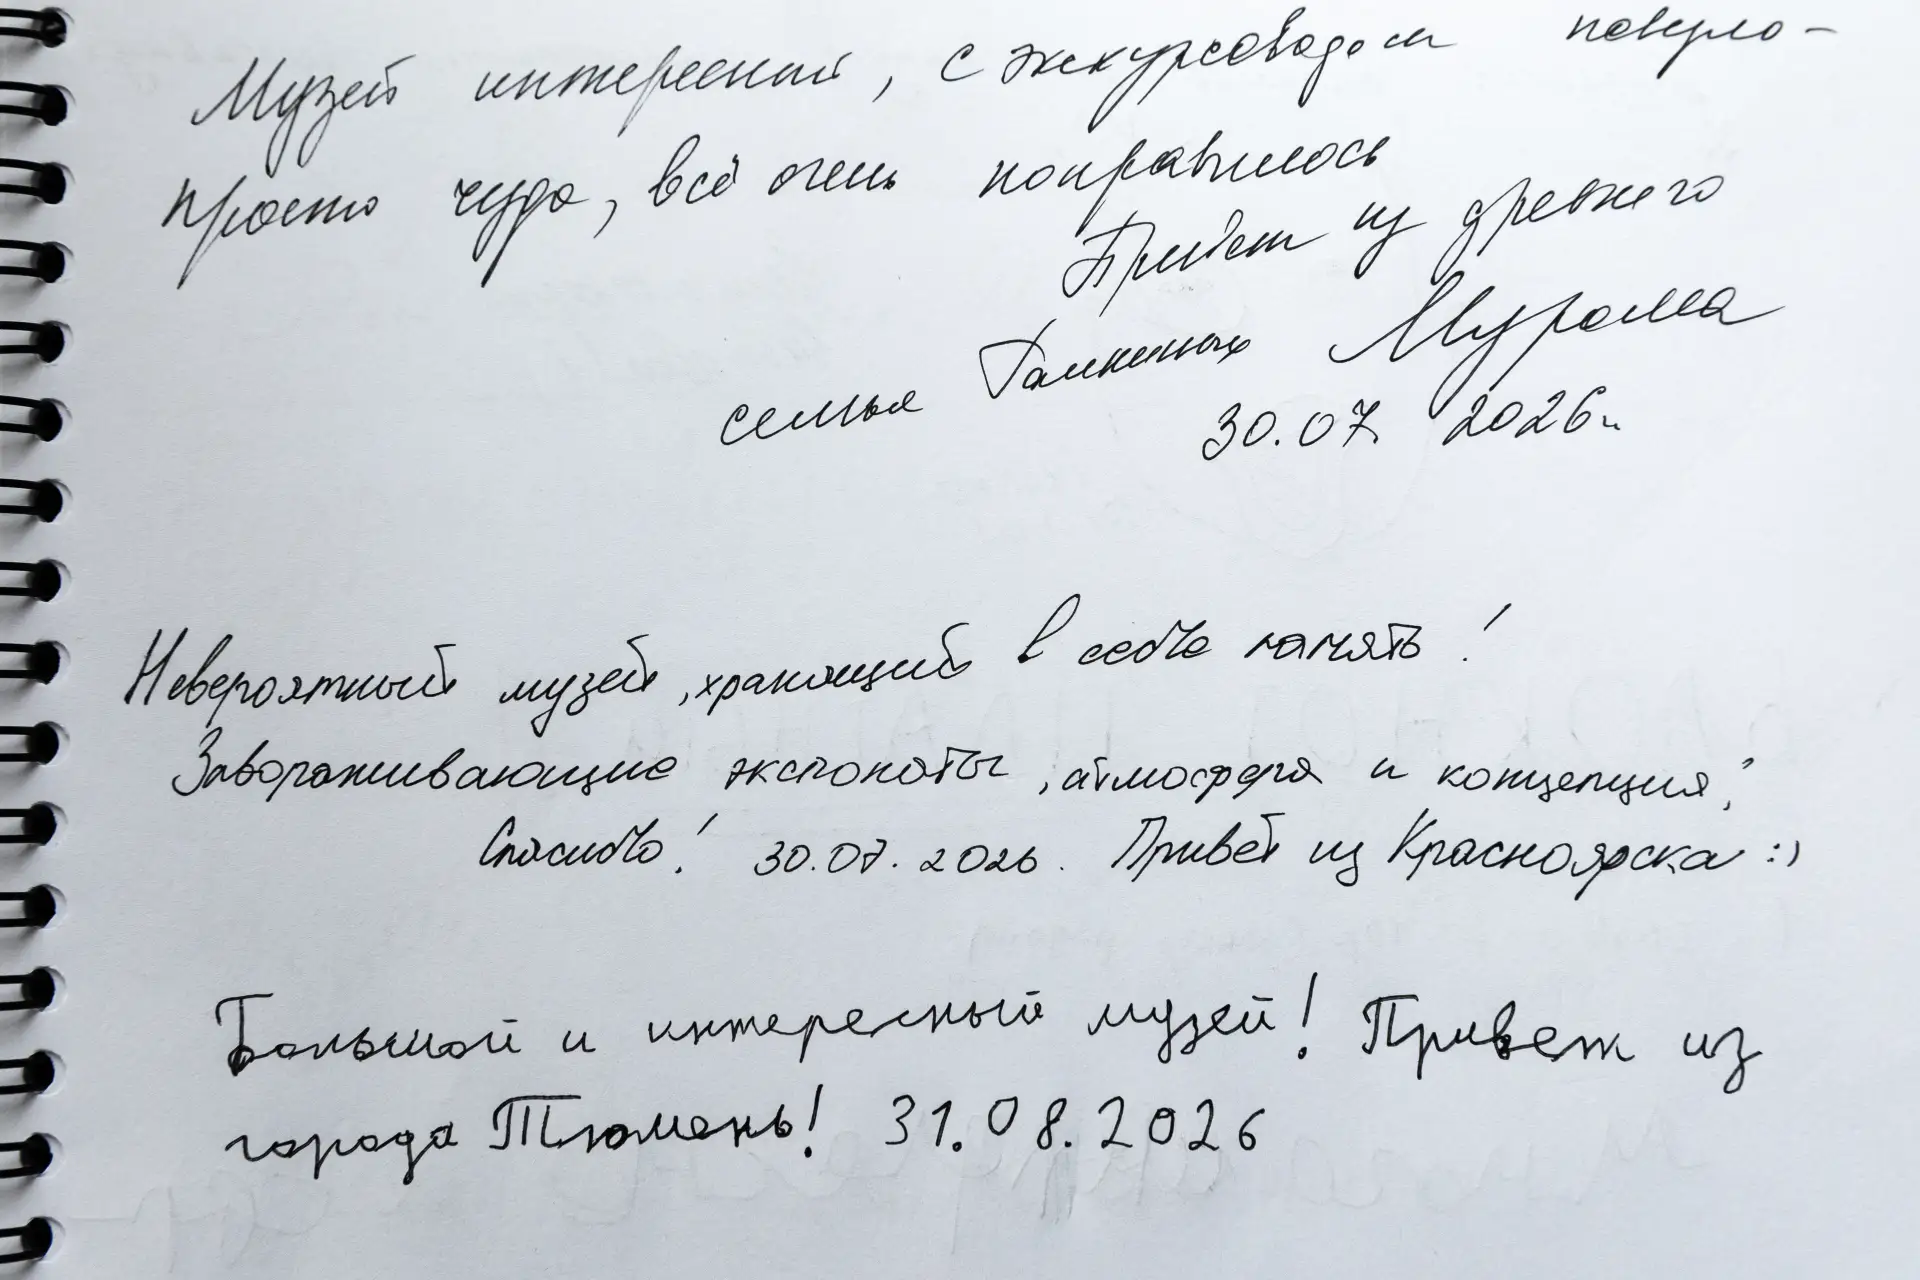 Музей интересный, с экскурсоводом повезло –
просто чудо, всё очень понравилось
Привет из древнего
семья Галкиных Мурома
30.07. 2026г.
Невероятный музей, хранящий в себе память!
Завораживающие экспонаты, атмосфера и концепция!
Спасибо! 30.07.2026. Привет из Красноярска :)
Большой и интересный музей! Привет из
города Тюмень! 31.08.2026